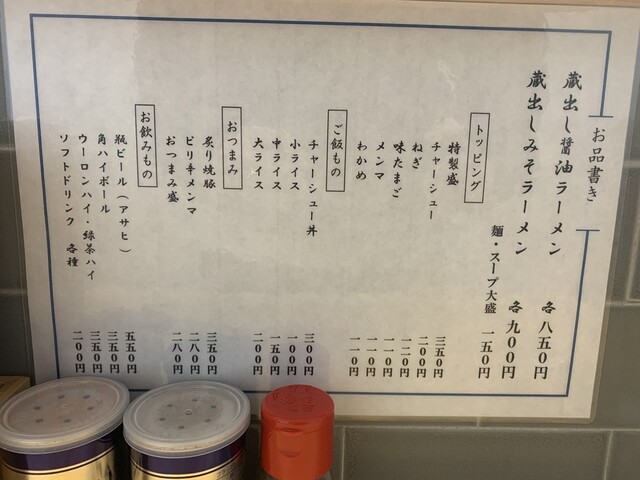 お品書き
蔵出し醤油ラーメン 各八五〇円
蔵出しみそラーメン 各九〇〇円
麺・スープ大盛 一五〇円
トッピング
特製盛 三五〇円
チャーシュー 二〇〇円
ねぎ 一二〇円
味たまご 一一〇円
メンマ 一一〇円
わかめ 一一〇円
ご飯もの
チャーシュー丼 三〇〇円
小ライス 一〇〇円
中ライス 一五〇円
大ライス 二〇〇円
おつまみ
炙り焼豚 三五〇円
ピリ辛メンマ 二八〇円
おつまみ盛 二八〇円
お飲みもの
瓶ビール（アサヒ） 五五〇円
角ハイボール 三五〇円
ウーロンハイ・緑茶ハイ 三五〇円
ソフトドリンク 各種 二〇〇円